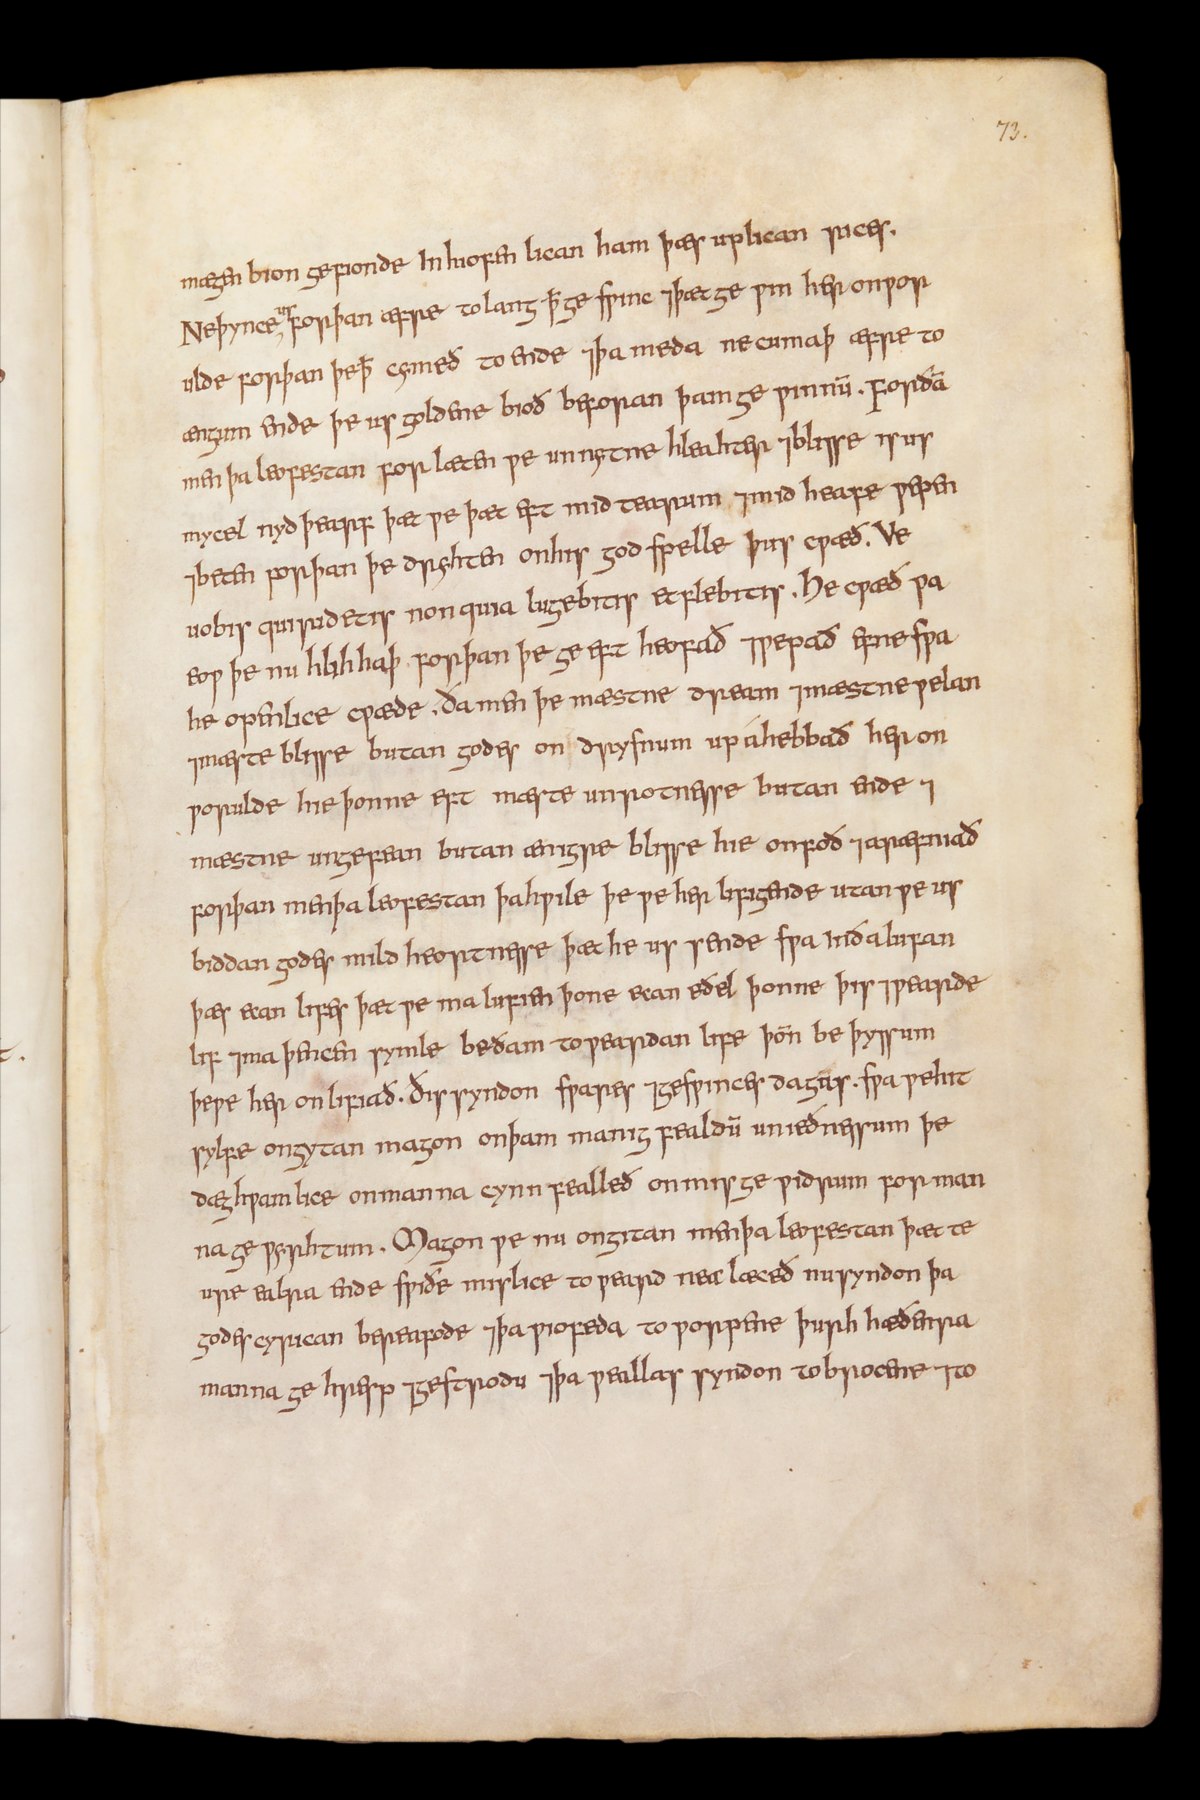 73.
mægen bion gefionde In hiofen lican ham þæs uplican rices.
Ne þynce us forþan æfre to lang þ̄ ge swinc ⁊ þæt ge win her on wor
ulde forþan þe þ̄ cymeð to ende ⁊ þa meda ne cumaþ æfre to
ængum ende þe us goldene bioð beforan þam ge winnū. forðā
men þa leofestan for læten we un nytne hleahter ⁊ blisse is us
mycel nyd þearf þæt we þæt eft mid tearum ⁊ mid heafe wepen
⁊ beten forþan þe dryhten on his god spelle þus cwæð. Ve
uobis qui ridetis non quia lugebitis et flebitis. He cwæð wa
eow þe nu hlihhaþ forþan þe ge eft heofað ⁊ wepað efne swa
he openlice cwæde. Ða men þe mæstne dream ⁊ mæstne welan
⁊ mæste blisse butan godes on drysnum up áhebbað her on
worulde hie þonne eft mæste unrotnesse butan ende ⁊
mæstne ungefean butan ænigre blisse hie onfoð ⁊ aræfniað
forþan men þa leofestan þa hwile þe we her lifigende utan we us
biddan godes mild heortnesse þæt he us sende swa inða lufan
þæs ecan lifes þæt we ma lufien þone ecan eðel þonne þis ⁊wearde
lif ⁊ ma þencen symle be ðam to weardan life þoñ be þyssum
þe we her on lifiað. Ðis syndon sware ⁊ geswinces dagas. swa we hit
sylfe ongytan magon on þam manig fealdū unieðnessum þe
dæg hwamlice on manna cynn fealleð on mis ge widrum for man
na ge wyrhtum. Magon we nu ongitan men þa leofestan þæt te
ure ealra ende swiðe mislice to weard nea læceð nu syndon þa
godes cyrican bereafode ⁊ þa wiofeda to worpene þurh hæðenra
manna ge hresp ⁊ gestriodu ⁊ þa weallas syndon to brocene ⁊ to